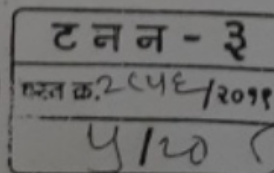 ट न न - ३
दस्त क्र. २८५६/२०११
५/२०